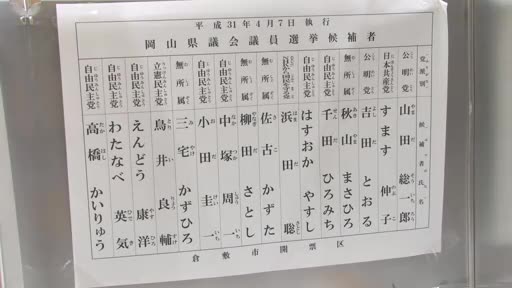 平成31年4月7日 執行
岡山県議会議員選挙候補者
党派別 候補者氏名
公明党 山田総一郎
日本共産党 すます伸子
公明党 吉田とおる
無所属 秋山まさひろ
自由民主党 千田ひろみち
自由民主党 はすおかやすし
NHKから国民を守る党 浜田聡
無所属 佐古かずた
無所属 柳田さとし
自由民主党 中塚周一
自由民主党 小田圭一
無所属 三宅かずひろ
立憲民主党 鳥井良輔
自由民主党 えんどう康洋
自由民主党 わたなべ英気
自由民主党 高橋かいりゅう
倉敷市開票区